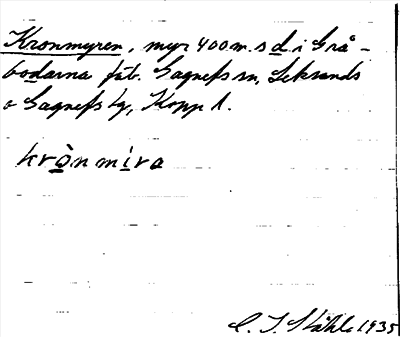 Kronmyren, myr 400 m. s d. i Grå-
bodarna fäb. Gagnefs sn, Leksands
o Gagnefs tg, Kopp l.
krònmira
C. I. Ståhle 1935